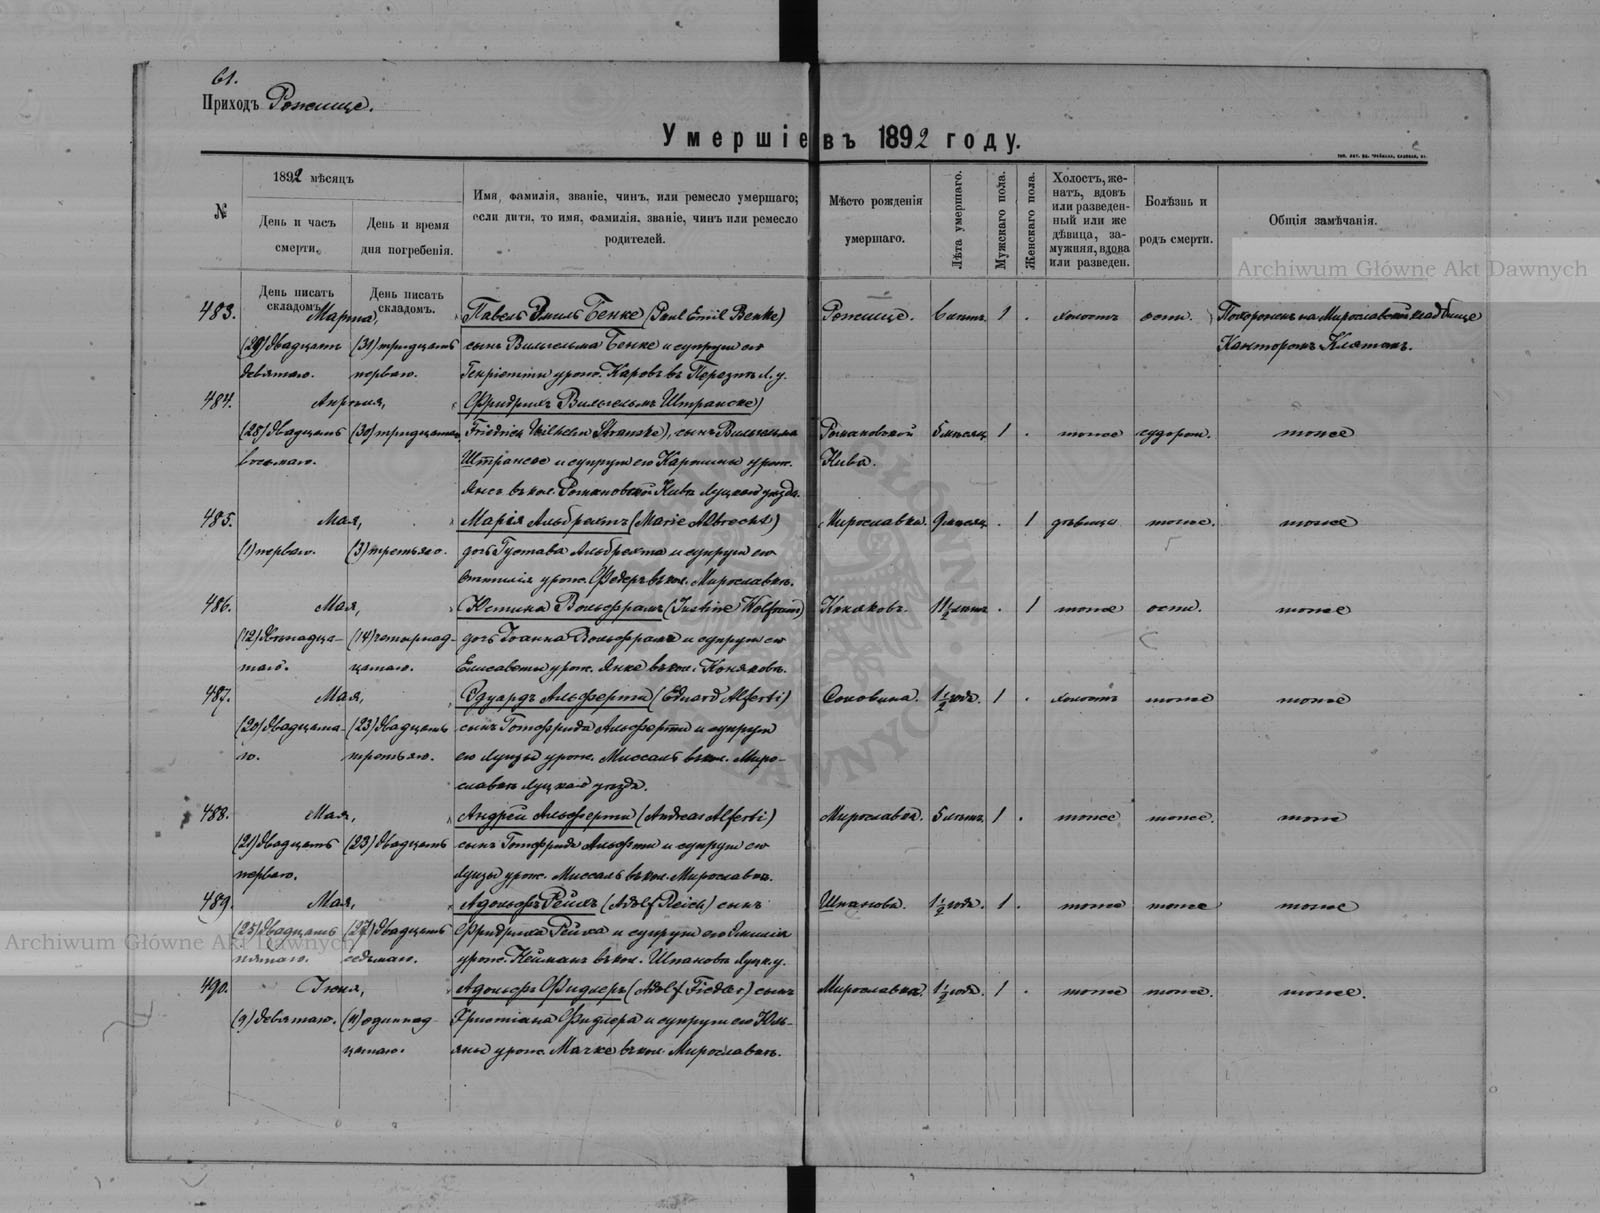 61.
Приходъ Рожище.
Умершіе въ 1892 году.
№
1892 мѣсяцъ
День и часъ смерти.
День и время дня погребенія.
Имя, фамилія, званіе, чинъ, или ремесло умершаго;
если дитя, то имя, фамилія, званіе, чинъ или ремесло
родителей.
Мѣсто рожденія
умершаго.
Лѣта умершаго.
Мужскаго пола.
Женскаго пола.
Холостъ, же-
натъ, вдовъ
или разведен-
ный или же
дѣвица, за-
мужняя, вдова
или разведен.
Болѣзнь и
родъ смерти.
Общія замѣчанія.
Archiwum Główne Akt Dawnych
День писать складомъ.
День писать складомъ.
483. Марта, Павелъ Эмиль Бенке (Paul Emil Benke) Рожище. 6 лѣтъ. 1 . холостъ оспы. Похороненъ на Мирославской кладбище
(29) двадцать (31) тридцать сынъ Вильгельма Бенке и супруги его Канторомъ
девятаго. перваго. Генріетты урож. въ
484. Апрѣля, Фридрихъ Вильгельмъ Штранске)
(28) двадцать (30) тридцатаго Friedrich Wilhelm Stranske), сынъ Вильгельма Романовской 5 мѣсяц. 1 . тоже судорож. тоже
восьмаго. Штранске и супруги его урож. Нива.
въ кол. Романовской Нивѣ Луцкаго уѣзда.
485. Мая, Марія Альбрехтъ (Marie Albrecht) Мирославка. 9 мѣсяц. . 1 дѣвица тоже. тоже
(1) перваго. (3) третьяго. дочь Густава Альбрехта и супруги его
Оттиліи урож. въ кол. Мирославкѣ.
486. Мая, Юстина Вольфрамъ (Justine Wolfram) Коняковъ. 11 1/2 лѣтъ. . 1 тоже оспы. тоже
(12) двѣнадца- (14) четырнад- дочь Іоанна Вольфрамъ и супруги его
таго. цатаго. Елисаветы урож. Янке въ кол. Коняковъ.
487. Мая, Эдуардъ Альферти (Eduard Alferti) 1 1/2 года. 1 . холостъ тоже тоже
(20) двадцата- (23) двадцать сынъ Готфрида Альферти и супруги
го. третьяго. его Луизы урож. Миссаль въ кол. Миро-
славкѣ Луцкаго уѣзда.
488. Мая, Андрей Альферти (Andreas Alferti) Мирославка. 5 лѣтъ. 1 . тоже тоже. тоже
(21) двадцать (23) двадцать сынъ Готфрида Альферти и супруги его
перваго. Луизы урож. Миссаль въ кол. Мирославкѣ.
489. Мая, Адольфъ Рейхъ (Adolf Reich) сынъ Шпановъ. 1 1/2 года. 1 . тоже тоже тоже
(25) двадцать (27) двадцать Фридриха Рейха и супруги его Эмилія
пятаго. седьмаго. урож. Нейманъ въ кол. Шпановъ Луцк. у.
Archiwum Główne Akt Dawnych
490. Іюня, Адольфъ Фидлеръ (Adolf Fiedler) сынъ Мирославка. 1 1/2 года. 1 . тоже тоже. тоже.
(9) девятаго. (11) одиннад- Христіана Фидлера и супруги его Юль-
цатаго. яны урож. Мачке въ кол. Мирославкѣ.